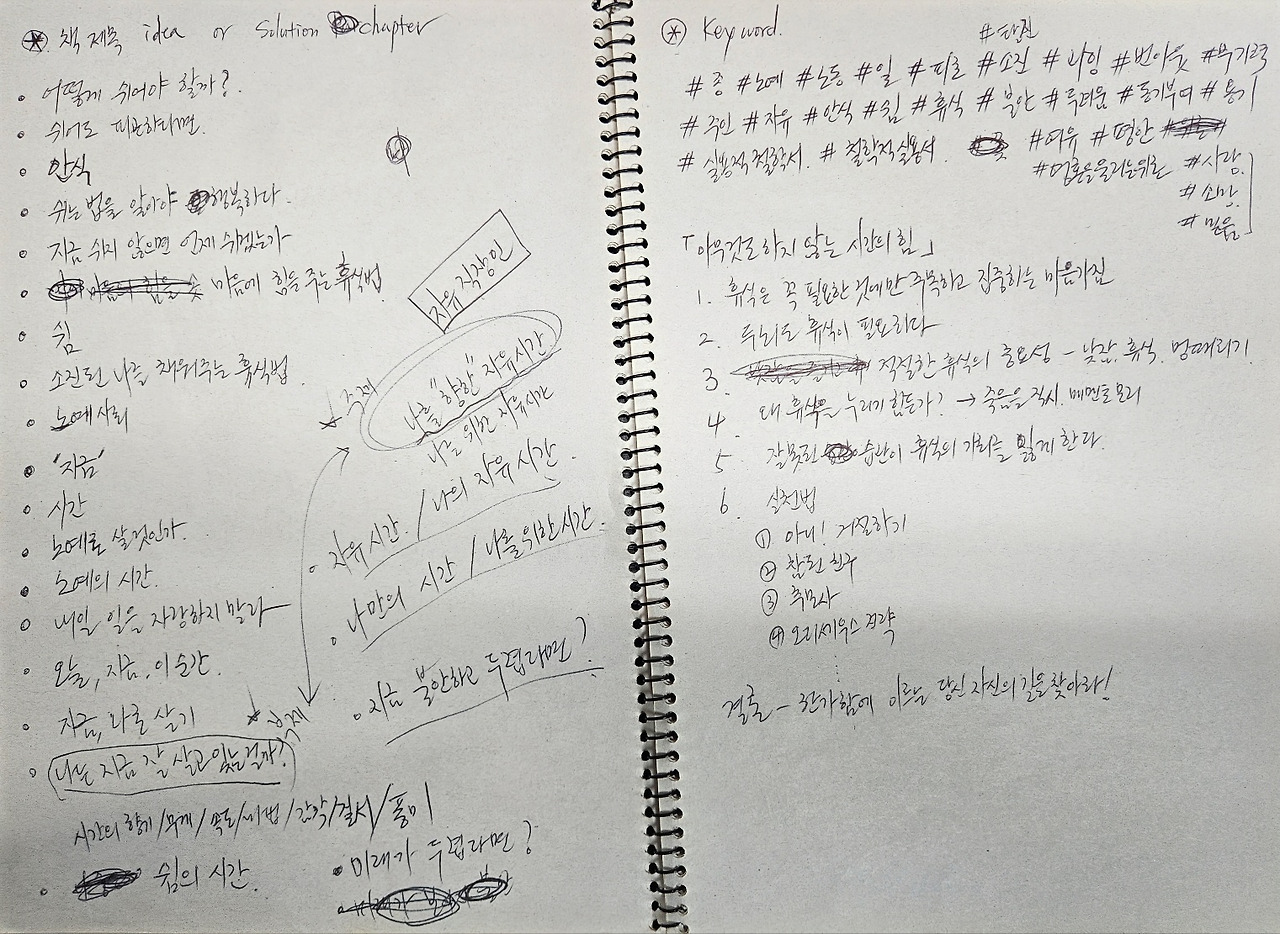 책 제목 idea or Solution chapter
• 어떻게 쉬어야 할까?
• 쉬어도 피곤하다면.
• 안식
• 쉬는 법을 알아야 행복하다.
• 지금 쉬지 않으면 언제 쉬겠는가
• 마음에 힘을 주는 휴식법.
• 쉼
• 소진된 나를 채워주는 휴식법.
• 노예사회
• "지금"
• 시간
• 노예로 살것인가.
• 노예의 시간.
• 내일 일을 자랑하지 말라
• 오늘, 지금, 이 순간.
• 지금, 나로 살기
• 나는 지금 잘 살고 있는걸까?
시간의 향기/무게/속도/마법/감각/질서/풍미
• 쉼의 시간.
자유 직장인
주제
나를 "향한" 자유시간
나를 위한 자유시간
• 자유시간. / 나의 자유시간.
• 나만의 시간 / 나를 위한 시간.
• 지금 불안하고 두렵다면?
부제
• 미래가 두렵다면?
Keyword.
#탈진
#종 #노예 #노동 #일 #피로 #소진 #번아웃 #무기력
#주인 #자유 #안식 #쉼 #휴식 #불안 #두려움 #동기부여 #용기
#실용적철학서. #철학적실용서. #여유 #평안
#영혼을울리는위로 #사랑.
#소망.
#믿음.
「아무것도 하지 않는 시간의 힘」
1. 휴식은 꼭 필요한 것에만 주목하고 집중하는 마음가짐
2. 두뇌도 휴식이 필요하다
3. 적절한 휴식의 중요성 - 낮잠. 휴식. 멍때리기
4 왜 휴식을 누리기 힘든가? → 죽음을 직시. 메멘토모리
5 잘못된 습관이 휴식의 가치를 잃게 한다.
6 실천법
① 아니! 거절하기
② 참된 친구
③ 추모사
④ 오디세우스 전략
결론 - 한가함에 이르는 당신 자신의 길을 찾아라!